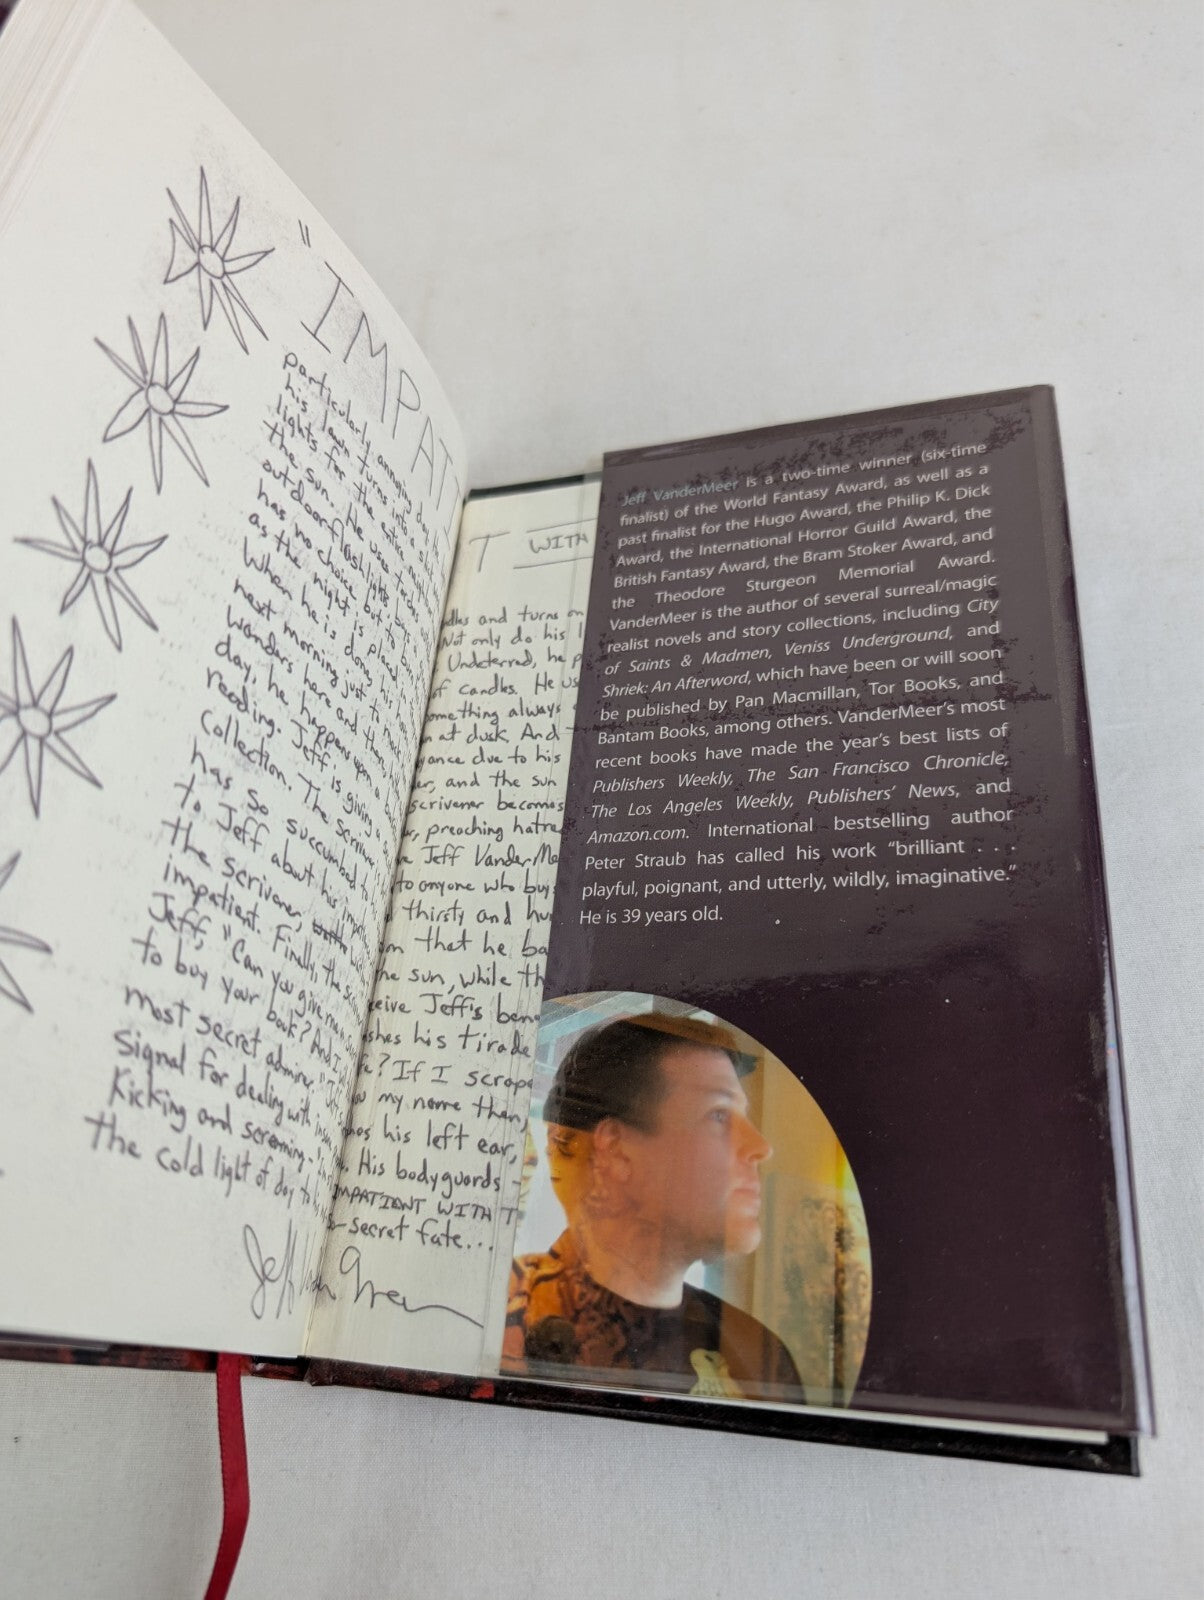 "IMPAT
particularly annoying day in
his lawn turns into a
lights for the entire neighbor
the sun. He uses torches
outdoor flashlights, buys a
has no choice but to burn
as the night is placed in
When he is done, his house
next morning, just to mock
wanders here and there,
day, he happens upon a
reading. Jeff is giving a
collection. The scrivener
has so succumbed to
to Jeff about his
the scrivener,
impatient. Finally, the
Jeff, "Can you give me a
to buy your book? And I
most secret admirer. "Jeff
signal for dealing with
Kicking and screaming - "
the cold light of day to his
T WITH
dles and turns on
Not only do his
Undeterred, he
of candles. He us
omething always
at dusk. And
ance due to his
er, and the sun
scrivener becomes
preaching hatre
Jeff VanderMe
to anyone who buy
thirsty and hu
that he ba
he sun, while th
ceive Jeff's
shes his tirade
? If I scrape
my name then,
his left ear,
His bodyguards -
IMPATIENT WITH T
-secret fate...
Jeff VanderMeer
Jeff VanderMeer is a two-time winner (six-time
finalist) of the World Fantasy Award, as well as a
past finalist for the Hugo Award, the Philip K. Dick
Award, the International Horror Guild Award, the
British Fantasy Award, the Bram Stoker Award, and
the Theodore Sturgeon Memorial Award.
VanderMeer is the author of several surreal/magic
realist novels and story collections, including City
of Saints & Madmen, Veniss Underground, and
Shriek: An Afterword, which have been or will soon
be published by Pan Macmillan, Tor Books, and
Bantam Books, among others. VanderMeer's most
recent books have made the year's best lists of
Publishers Weekly, The San Francisco Chronicle,
The Los Angeles Weekly, Publishers' News, and
Amazon.com. International bestselling author
Peter Straub has called his work "brilliant . . .
playful, poignant, and utterly, wildly, imaginative."
He is 39 years old.